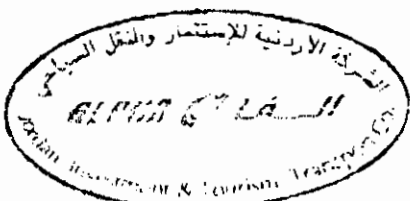 الشركة الأردنية للإستثمار والنقل السياحي
ALFUR الفـا
Jordan Investment & Tourism Transport